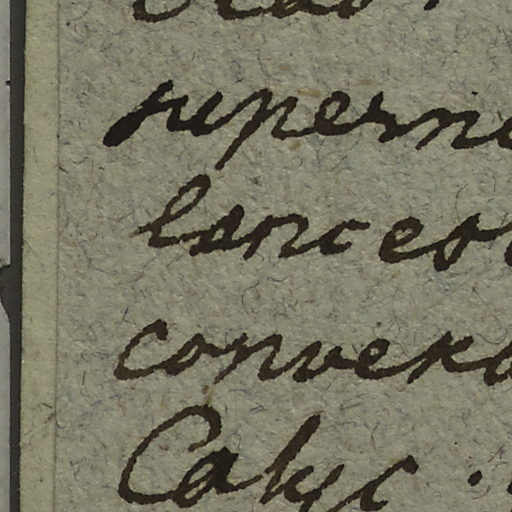 superne
lanceo
convexo
Calyc.